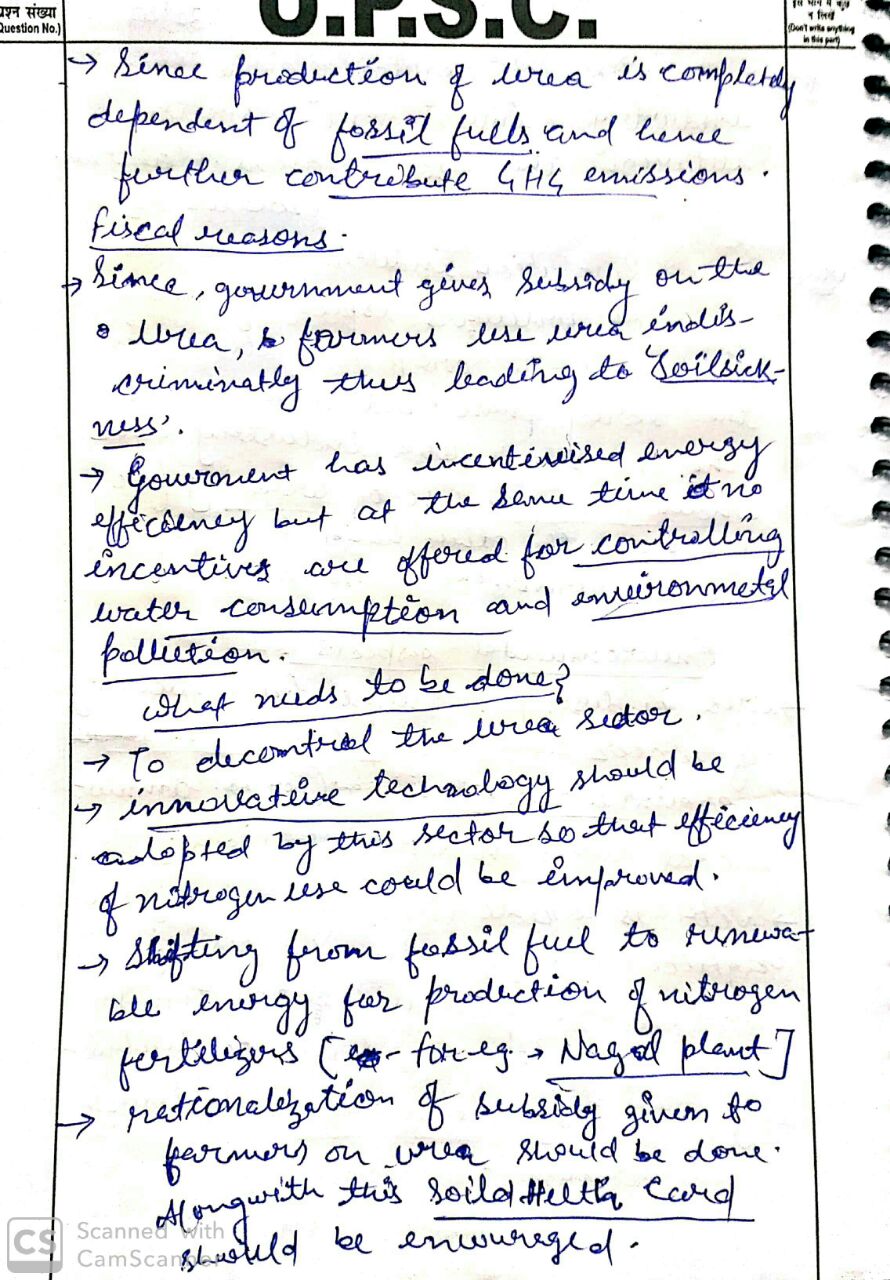 प्रश्न संख्या
Question No.)
U.P.S.C.
इस भाग में कुछ
न लिखें
(Don't write anything
in this part)
→ Since production of urea is completely
dependent of fossil fulls and hence
further contribute GHG emissions.
fiscal reasons.
→ Since, government gives subsidy on the
urea, farmers use urea indis-
criminatly thus leading to 'Soilsick-
ness'.
→ Gouverment has incentivised energy
efficiency but at the same time no
incentives are offered for controlling
water consumption and environmetal
pollution.
what needs to be done?
→ To decontrol the urea sector.
→ innovative technology should be
adopted by this sector so that efficiency
of nitrogen use could be improved.
→ Shifting from fossil fuel to renewa-
ble energy for production of nitrogen
fertilizers [ for eg. → Nagal plant ]
→ rationalization of subsidy given to
farmers on urea should be done.
Alongwith this Soild Helth Card
should be encouraged.
CS Scanned with
CamScanner